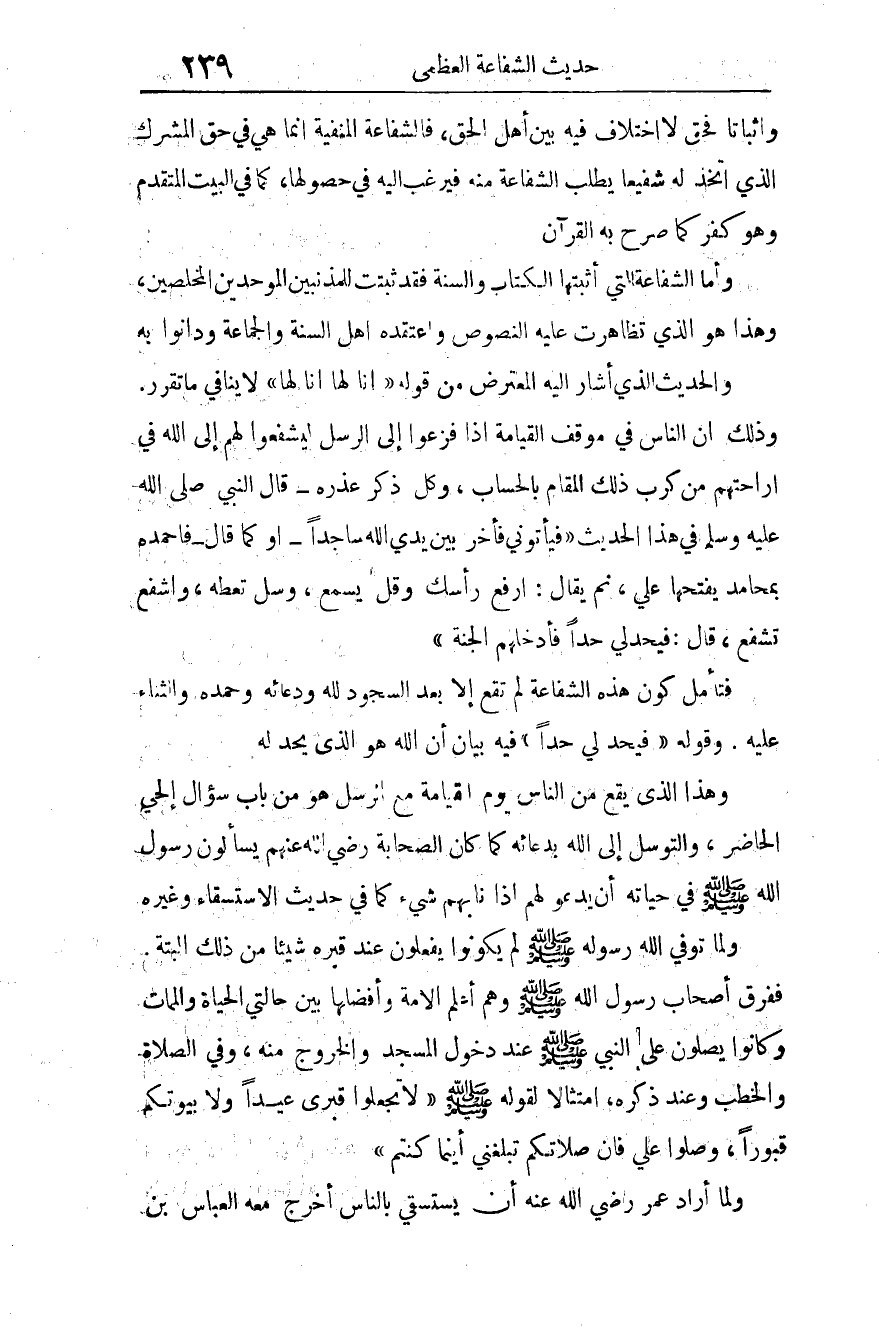 حديث الشفاعة العظمى ٢٣٩
واثباتا فحق لا اختلاف فيه بين أهل الحق، فالشفاعة المنفية انما هي في حق المشرك
الذي اتخذ له شفيعا يطلب الشفاعة منه فيرغب اليه في حصولها، كما في البيت المتقدم
وهو كفر كما صرح به القرآن
وأما الشفاعة التي أثبتها الكتاب والسنة فقد ثبتت للمذنبين الموحدين المخلصين،
وهذا هو الذي تظاهرت عليه النصوص واعتقده اهل السنة والجماعة ودانوا به
والحديث الذي أشار اليه المعترض من قوله « انا لها انا لها» لا ينافي ما تقرر.
وذلك ان الناس في موقف القيامة اذا فزعوا إلى الرسل ليشفعوا لهم إلى الله في
اراحتهم من كرب ذلك المقام بالحساب ، وكل ذكر عذره ــ قال النبي صلى الله
عليه وسلم في هذا الحديث «فيأتوني فأخر بين يدي الله ساجداً ــ او كما قال ــ فاحمده
بمحامد يفتحها علي ، ثم يقال : ارفع رأسك وقل يسمع ، وسل تعطه ، واشفع
تشفع ، قال : فيحد لي حداً فأدخلهم الجنة »
فتأمل كون هذه الشفاعة لم تقع إلا بعد السجود لله ودعائه وحمده والثناء
عليه . وقوله « فيحد لي حداً » فيه بيان أن الله هو الذى يحد له
وهذا الذى يقع من الناس يوم القيامة مع الرسل هو من باب سؤال الحي
الحاضر ، والتوسل إلى الله بدعائه كما كان الصحابة رضي الله عنهم يسألون رسول
الله ﷺ في حياته أن يدعو لهم اذا نابهم شيء كما في حديث الاستسقاء وغيره
ولما توفي الله رسوله ﷺ لم يكونوا يفعلون عند قبره شيئا من ذلك البتة .
ففرق أصحاب رسول الله ﷺ وهم أعلم الامة وأفضلها بين حالتي الحياة والممات
وكانوا يصلون على النبي ﷺ عند دخول المسجد والخروج منه ، وفي الصلاة
والخطب وعند ذكره، امتثالا لقوله ﷺ « لا تجعلوا قبرى عيداً ولا بيوتكم
قبوراً ، وصلوا علي فان صلاتكم تبلغني أينما كنتم »
ولما أراد عمر رضي الله عنه أن يستسقي بالناس أخرج معه العباس بن